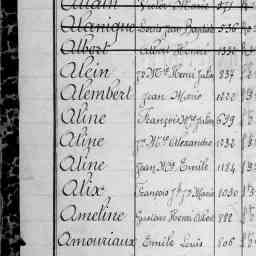 Alanique Louis Jean Baptiste 536
Albert Albert
Alcin Jh Mie Henri Jules 834
Alembert Jean Marie 1222
Aline François Mie Julien 659
Aline Jh Mie Alexandre 1232
Aline Jean Mie Emile 1184
Alix François Jh Jn Marie 1030
Ameline Gustave Henri Albert 982
Amouriaux Emile Louis 806